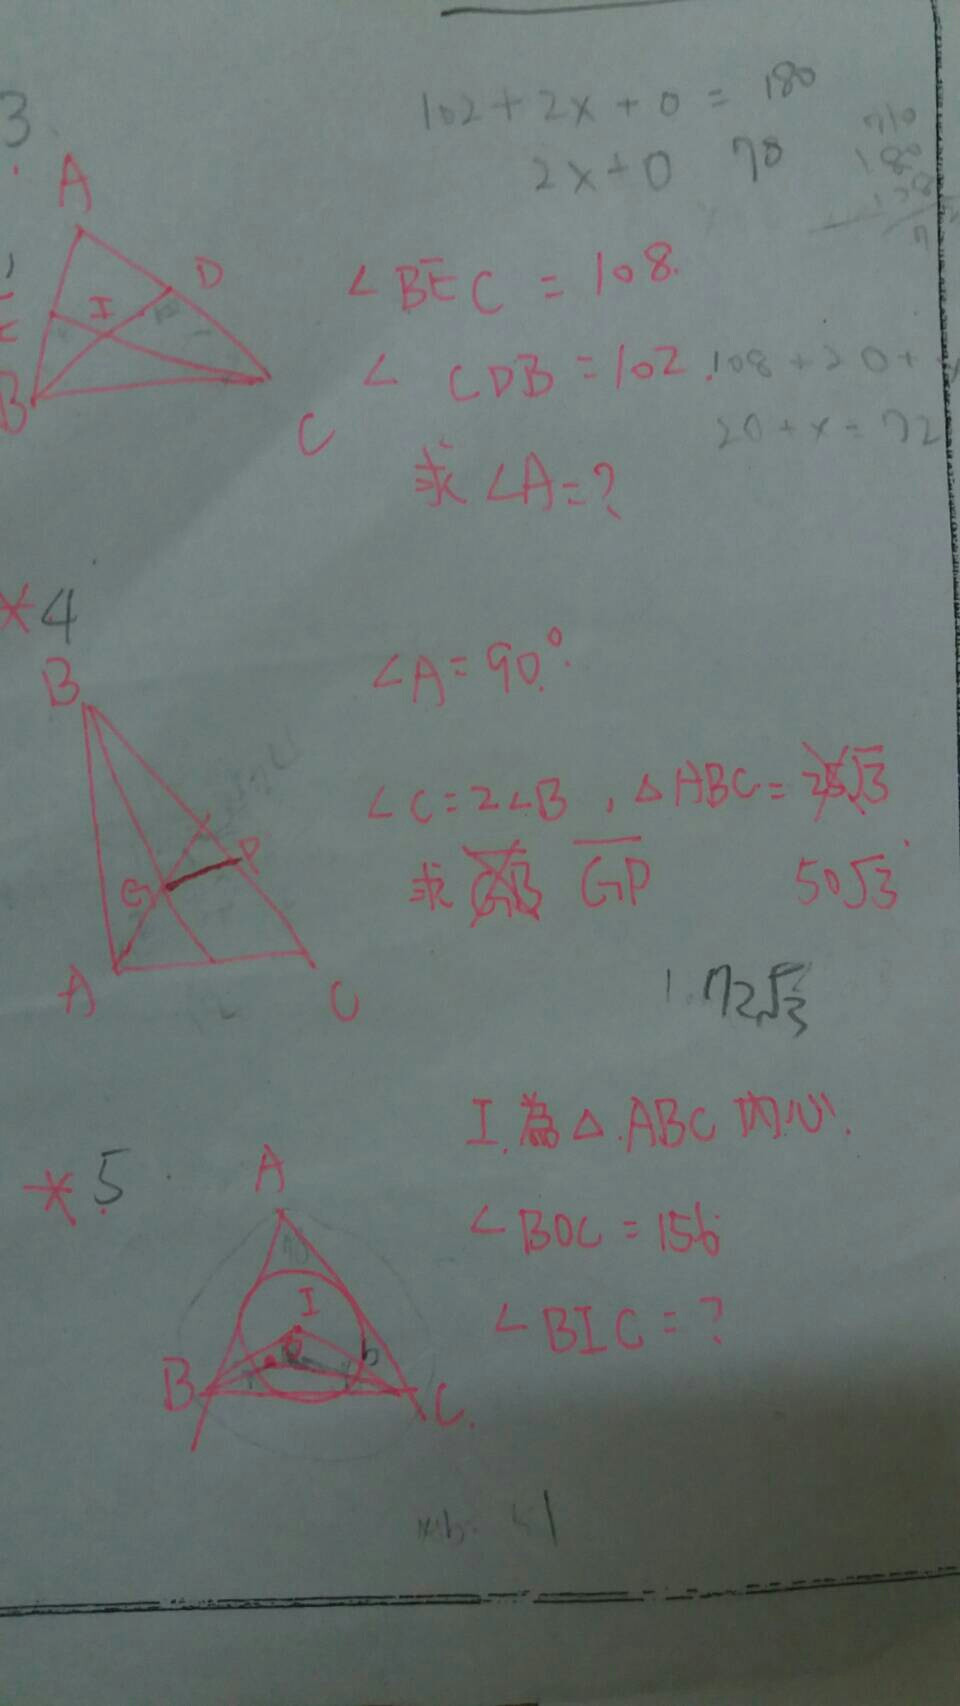 3
102+2x+0=180
2x+0 78
A
D
I
B
C
∠BEC=108.
∠CDB=102.
108+20+
20+x=72
求∠A=?
*4
B
∠A=90°.
∠C=2∠B,△ABC=
50√3
求 GP
G
P
A
C
72√3
I為△ABC內心.
*5
A
∠BOC=156
I
∠BIC=?
B
C.